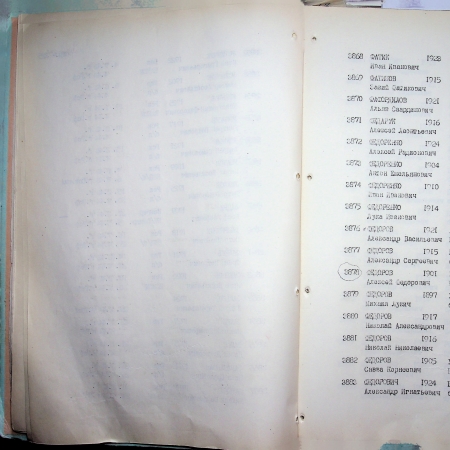 3868 ФАТИН 1923
Иван Иванович
3869 1915
3870 1921
3871 1916
Алексей Леонтьевич
3872 ФЕДОРЕНКО 1924
Алексей Родионович
3873 ФЕДОРЕНКО 1904
Антон Емельянович
3874 ФЕДОРЕНКО 1910
Иван Иванович
3875 ФЕДОРЕНКО 1914
Лука Иванович
3876 ФЕДОРОВ 1921
Александр Васильевич
3877 ФЕДОРОВ 1915
Александр Сергеевич
3878 ФЕДОРОВ 1901
Алексей Федорович
3879 ФЕДОРОВ 1897
Михаил Лукич
3880 ФЕДОРОВ 1917
Николай Александрович
3881 ФЕДОРОВ 1916
Николай Николаевич
3882 ФЕДОРОВ 1905
Савва Борисович
3883 ФЕДОРОВИЧ 1924
Александр Игнатьевич